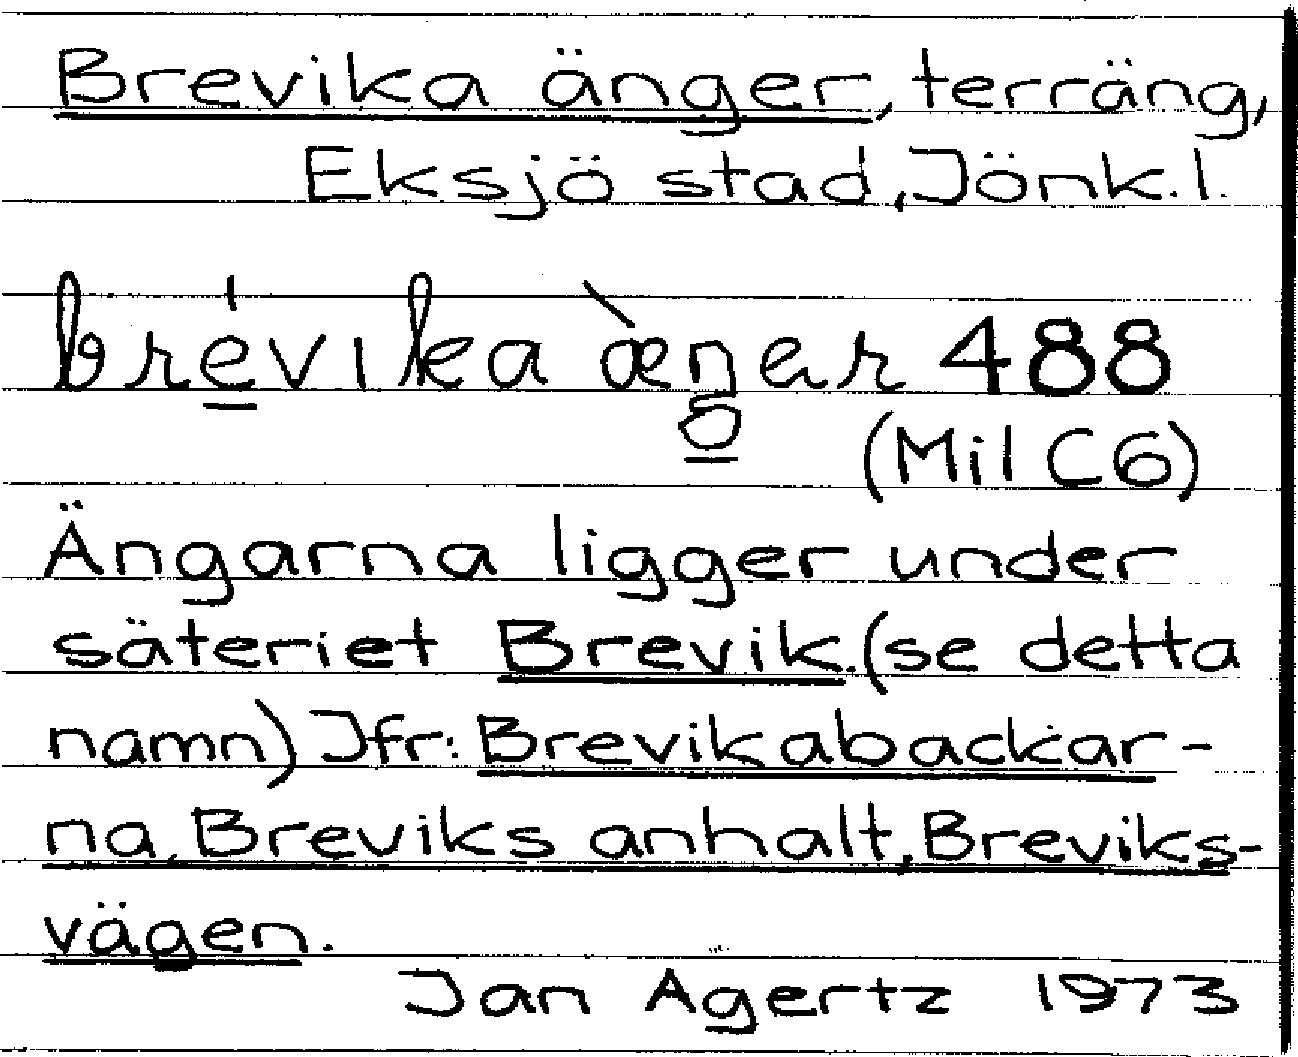 Brevika änger, terräng,
Eksjö stad, Jönk.l.
brévika æ̀ŋar 488
(Mil C6)
Ängarna ligger under
säteriet Brevik. (se detta
namn) Jfr: Brevikabackar-
na, Breviks anhalt, Breviks-
vägen.
Jan Agertz 1973